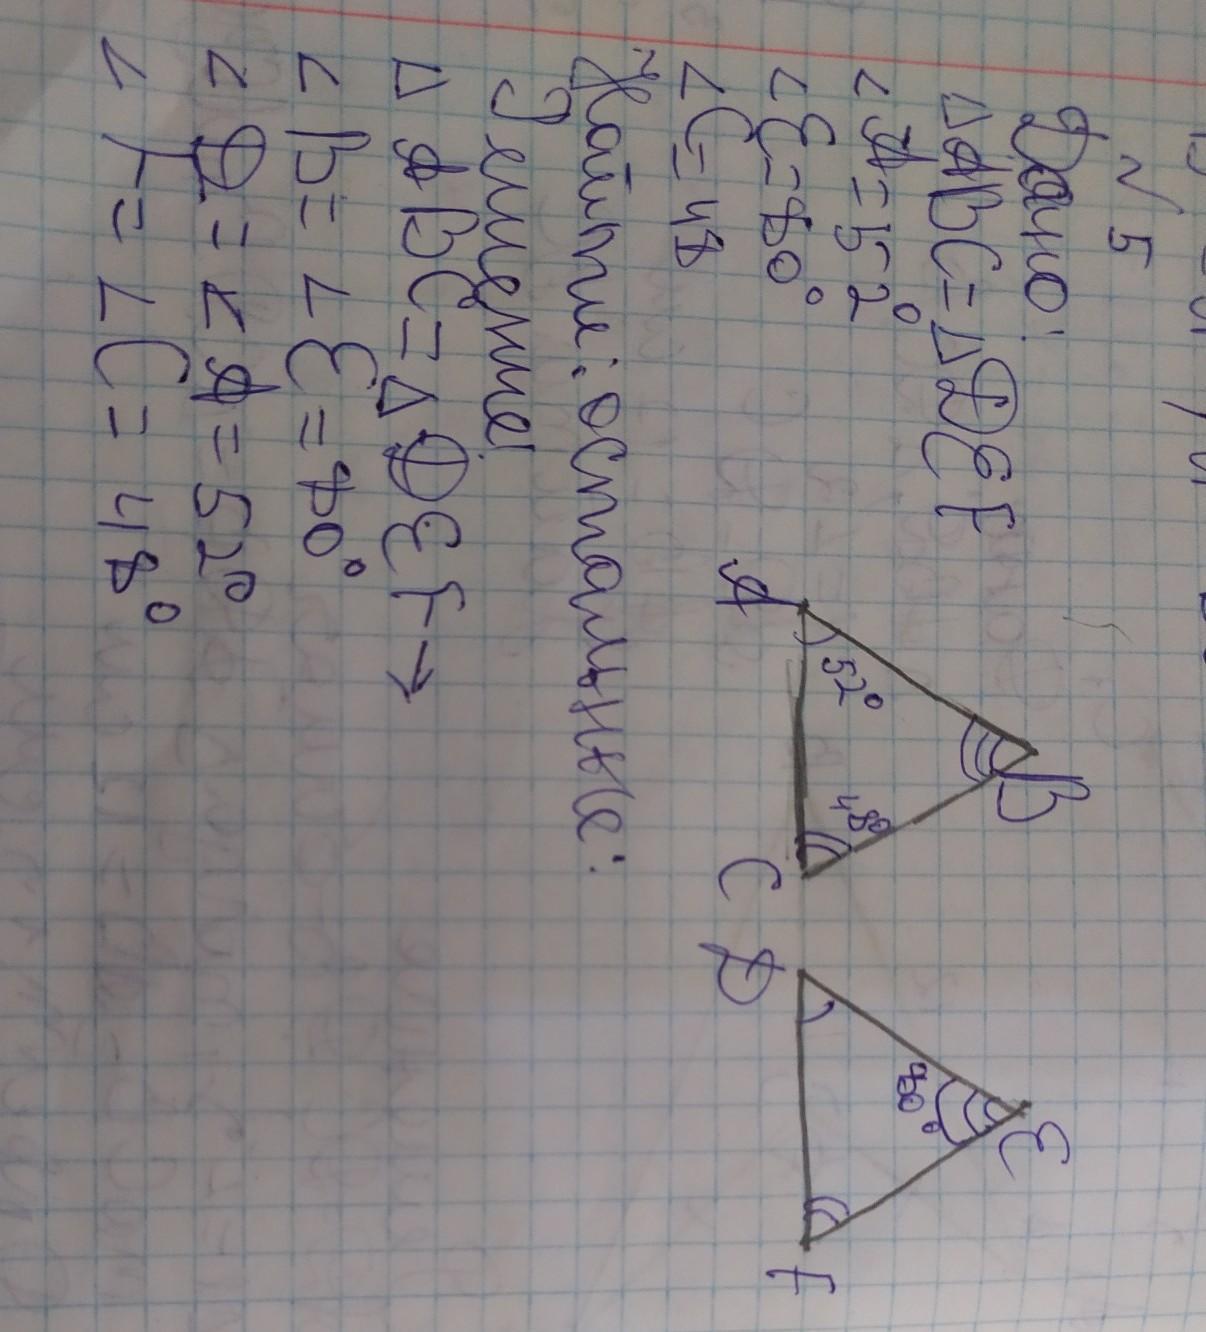 №5
Дано:
△ABC=△DEF
∠A=52°
∠E=80°
∠C=48
Найти: остальные:
Решение:
△ABC=△DEF→
∠B=∠E=80°
∠D=∠A=52°
∠F=∠C=48°
A
52°
B
48°
C
D
80°
E
F